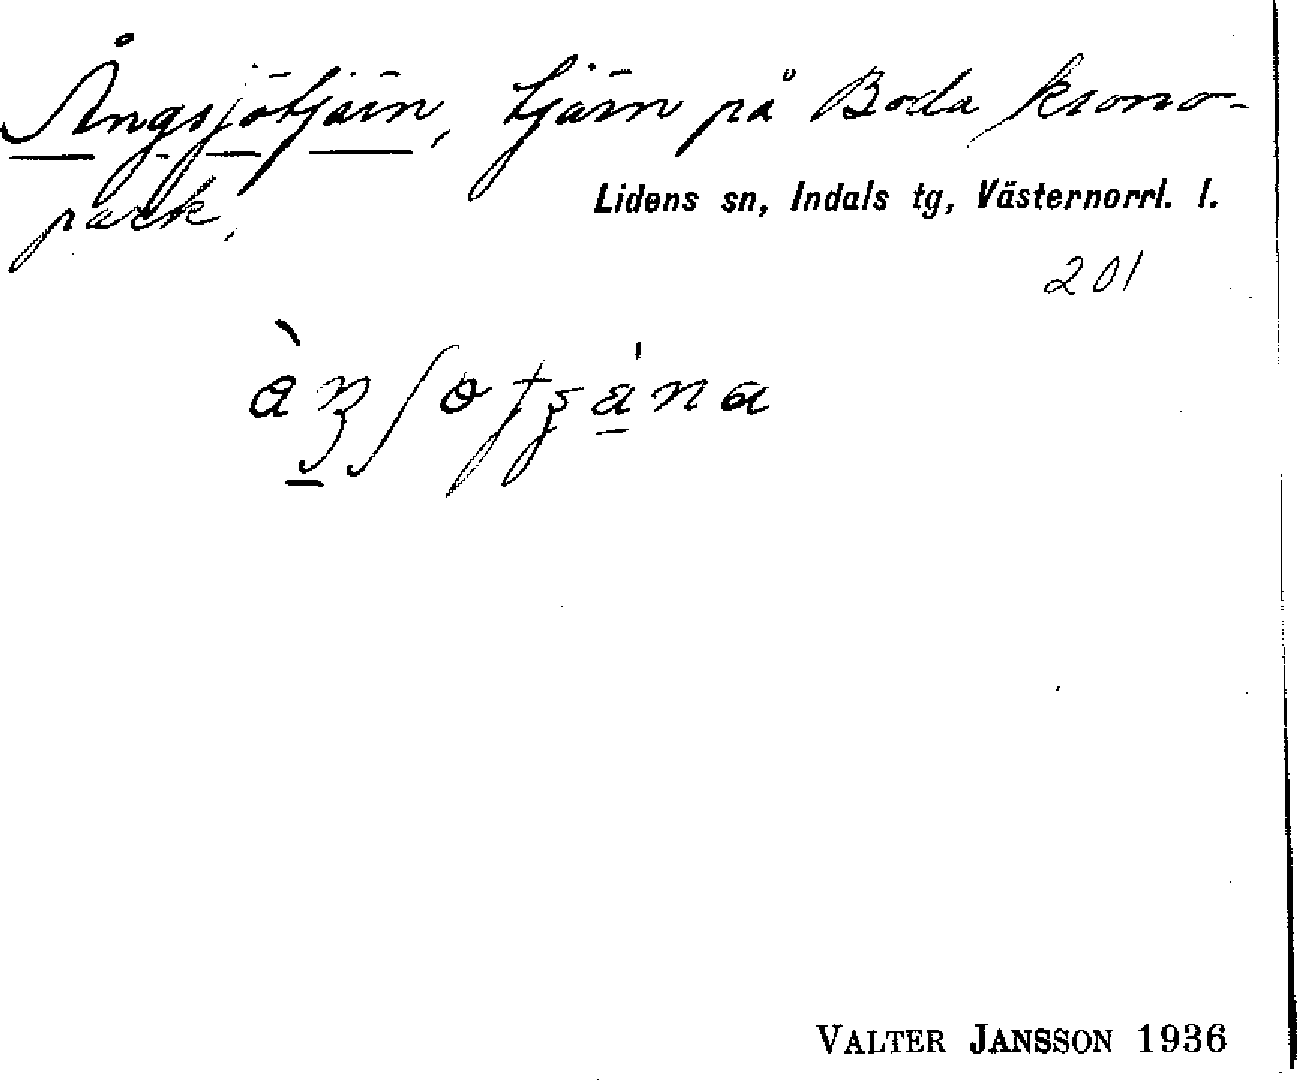 Ängsjötjärn, tjärn på Boda krono-
park.
Lidens sn, Indals tg, Västernorrl. l.
201
VALTER JANSSON 1936